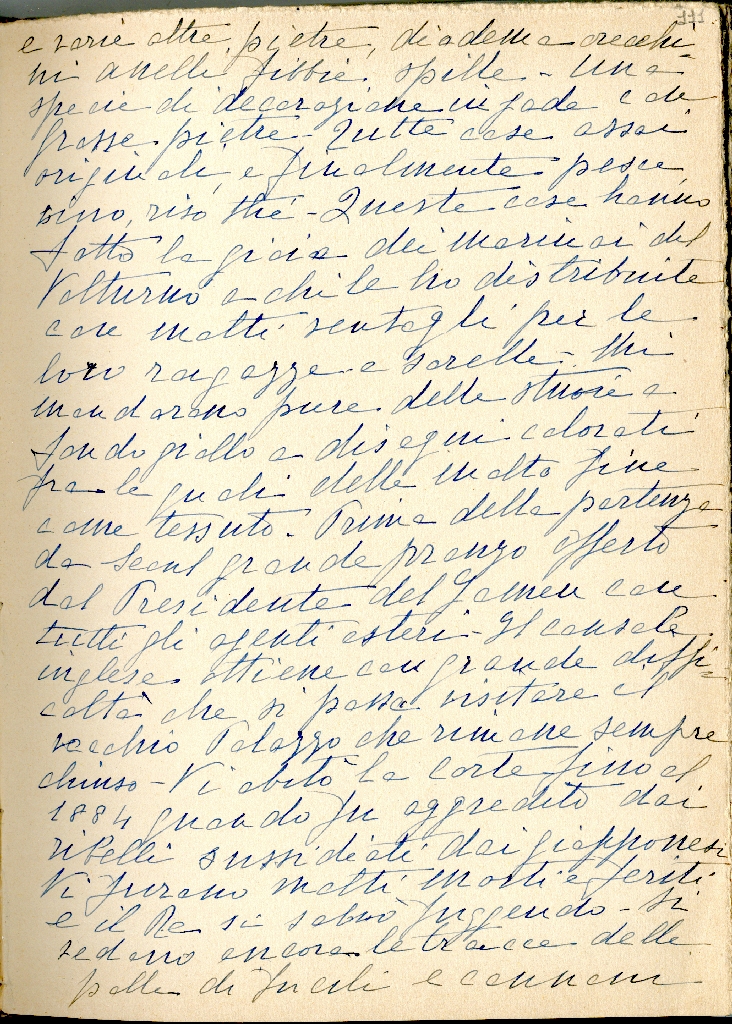 e varie altre pietre, diadema orecchi-
ni anelli fibbie, spille - Una
specie di decorazione in jade con
grosse pietre - Tutte cose assai
originali, e finalmente pesce,
vino, riso, thé - Queste cose hanno
fatto la gioia dei marinai del
Volturno a chi le ho distribuite
con molti ventagli per le
loro ragazze e sorelle - Mi
mandarono pure delle stuoie a
fondo giallo a disegni colorati
fra le quali delle molto fine
come tessuto. Prima della partenza
da Seoul grande pranzo offerto
dal Presidente del Jamen con
tutti gli agenti esteri - Il console
inglese ottiene con grande diffi-
coltà che si possa visitare il
vecchio Palazzo che rimane sempre
chiuso - Vi abitò la corte fino al
1884 quando fu aggredito dai
ribelli sussidiati dai giapponesi
Vi furono molti morti e feriti
e il Re si salvò fuggendo - Si
vedono ancora le tracce delle
palle di fucili e cannoni